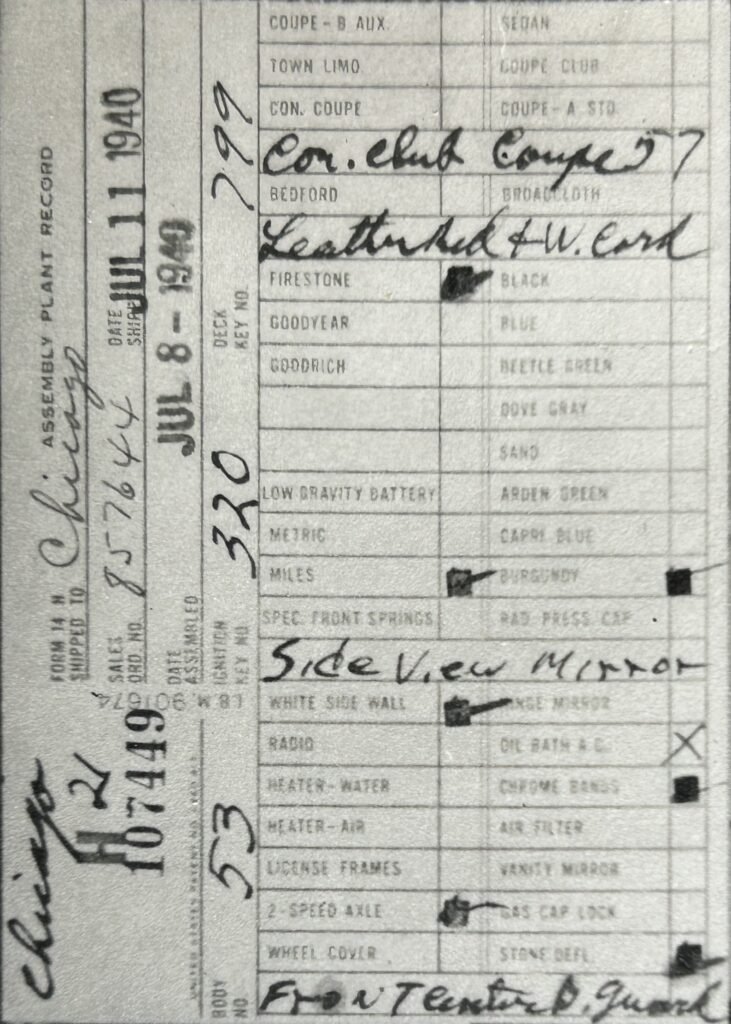 FORM 14 H ASSEMBLY PLANT RECORD
SHIPPED TO Chicago
SALES ORD. NO. 857644 DATE SHIP. JUL 11 1940
DATE ASSEMBLED JUL 8 - 1940
BODY NO. 53 IGNITION KEY NO. 320 DECK KEY NO. 799
Chicago
H 21
107449
I.B.M. 901674
COUPE - B AUX. SEDAN
TOWN LIMO. COUPE CLUB
CON. COUPE COUPE - A STD.
Con. club Coupe 57
BEDFORD BROADCLOTH
Leather Red & W. Cord
FIRESTONE BLACK
GOODYEAR BLUE
GOODRICH BEETLE GREEN
DOVE GRAY
SAND
LOW GRAVITY BATTERY ARDEN GREEN
METRIC CAPRI BLUE
MILES BURGUNDY
SPEC. FRONT SPRINGS RAD PRESS CAP
Side View Mirror
WHITE SIDE WALL MIRROR
RADIO OIL BATH A.C. X
HEATER-WATER CHROME BANDS
HEATER-AIR AIR FILTER
LICENSE FRAMES VANITY MIRROR
2-SPEED AXLE GAS CAP LOCK
WHEEL COVER STONE DEFL.
Front Center B. Guard